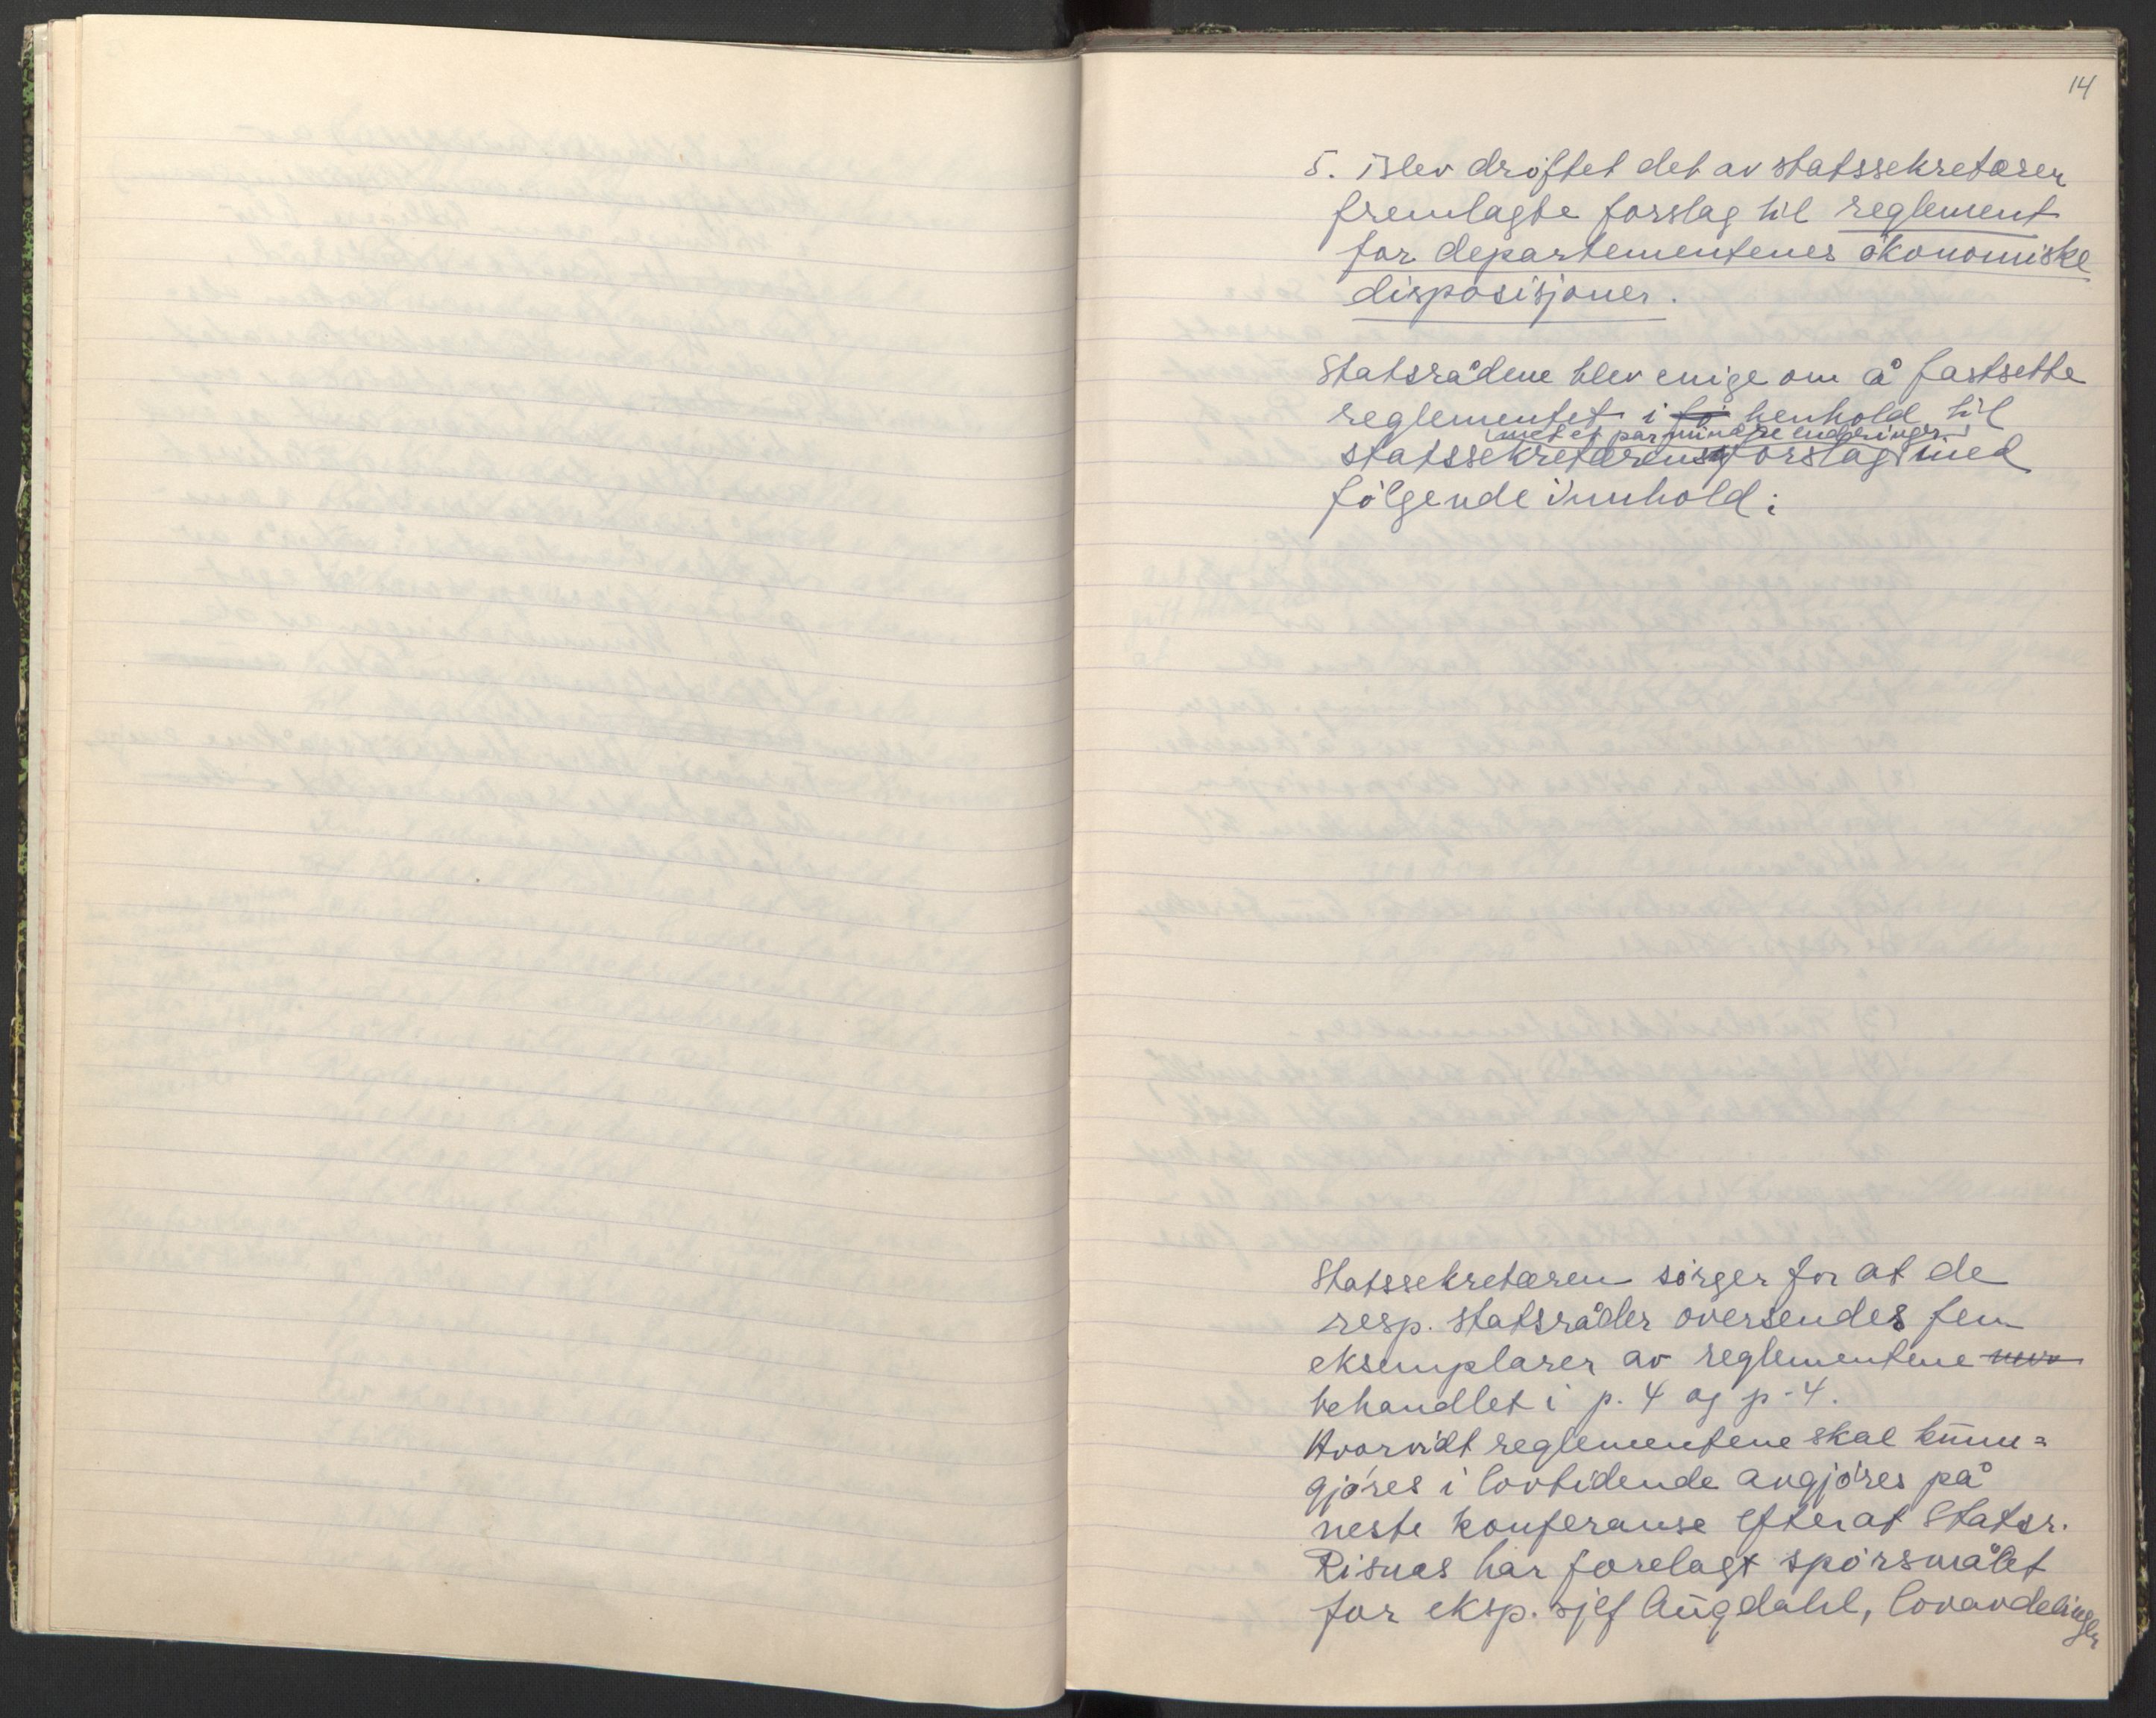 14
5. Blev drøftet det av statssekretæren
fremlagte forslag til reglement
for departementenes økonomiske
disposisjoner.
Statsrådene blev enige om å fastsette
reglementet i fø henhold til
med et par mindre endringer
statssekretærens forslag med
følgende innhold:
Statssekretæren sørger for at de
resp. statsråder oversendes fem
eksemplarer av reglementene
behandlet i p. 4 og p. 4.
Hvorvidt reglementene skal kunn=
gjøres i lovtidende avgjøres på
neste konferanse efterat Statsr.
Risnæs har forelagt spørsmålet
for eksp. sjef Augdahl, lovavdelingen